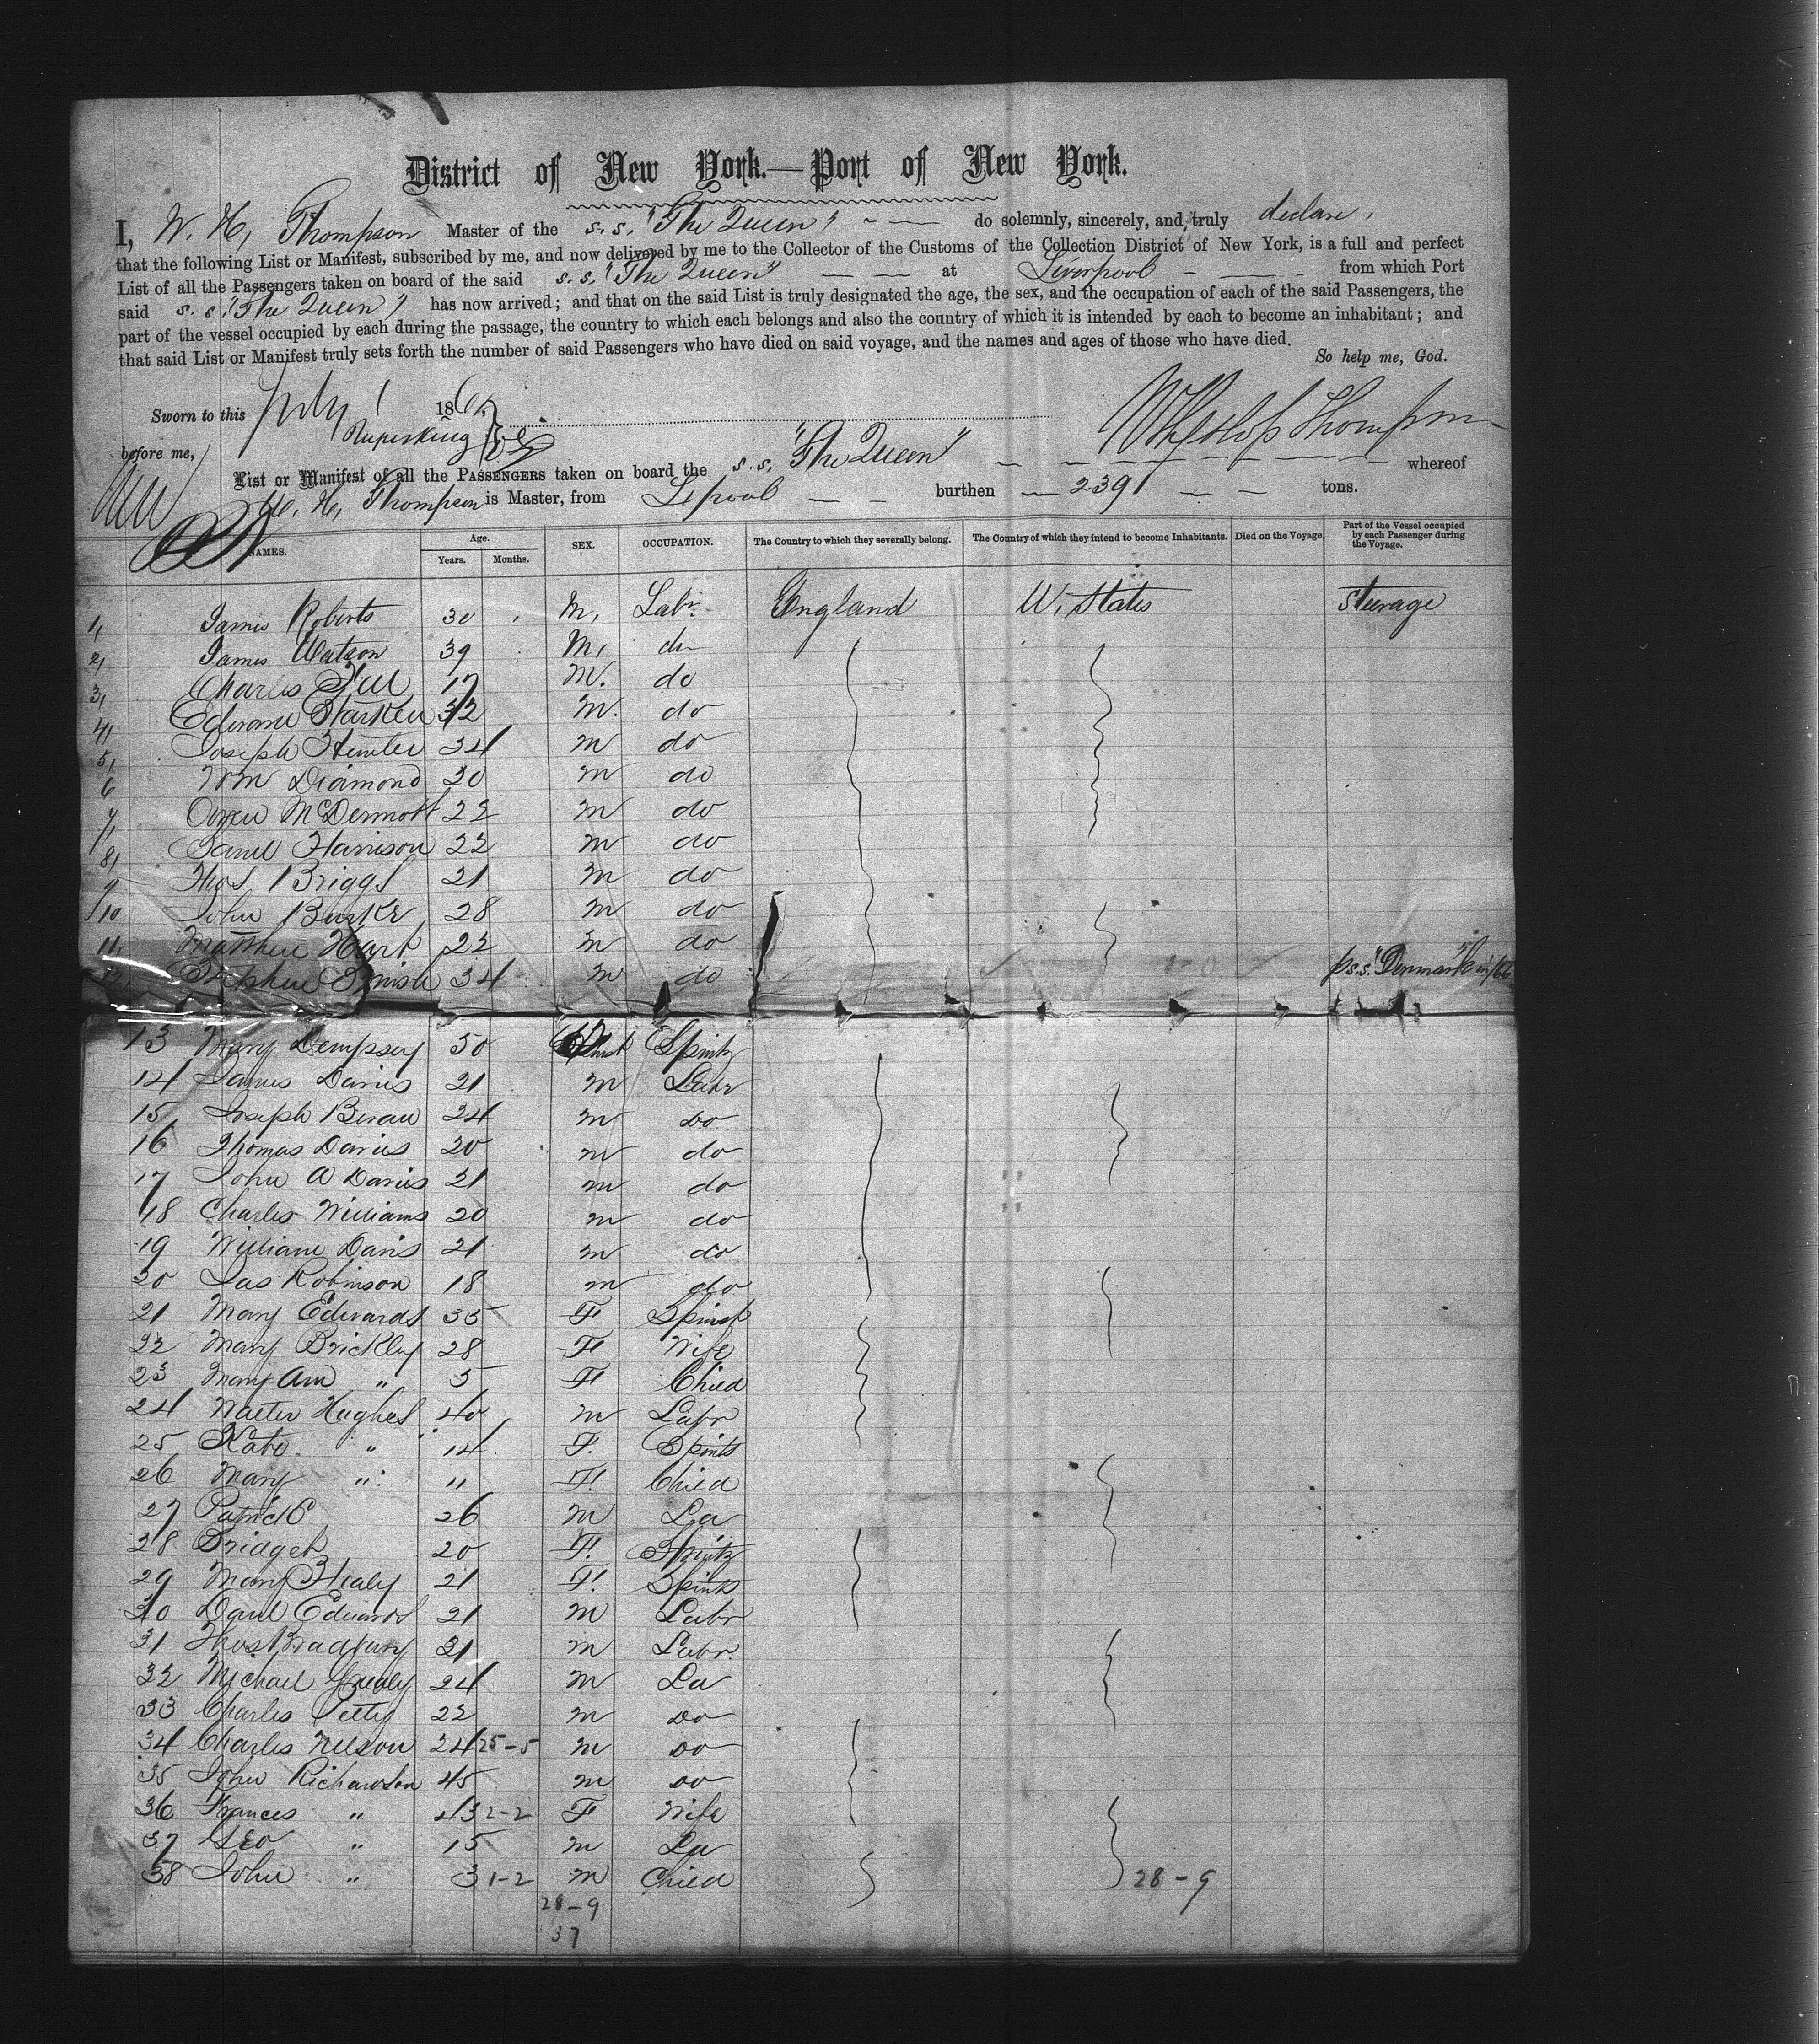 District of New York.—Port of New York.
I, W. H. Thompson Master of the s.s. "The Queen" do solemnly, sincerely, and truly declare,
that the following List or Manifest, subscribed by me, and now delivered by me to the Collector of the Customs of the Collection District of New York, is a full and perfect
List of all the Passengers taken on board of the said s.s. "The Queen" — — at Liverpool - — - from which Port
said s.s. "The Queen" has now arrived; and that on the said List is truly designated the age, the sex, and the occupation of each of the said Passengers, the
part of the vessel occupied by each during the passage, the country to which each belongs and also the country of which it is intended by each to become an inhabitant; and
that said List or Manifest truly sets forth the number of said Passengers who have died on said voyage, and the names and ages of those who have died.
So help me, God.
Sworn to this July 1 186
before me,
Thompson
List or Manifest of all the PASSENGERS taken on board the s.s. "The Queen" — — whereof
W. H. Thompson is Master, from Lpool — — burthen — 2391 — — tons.
NAMES. Age. Years. Months. SEX. OCCUPATION. The Country to which they severally belong. The Country of which they intend to become Inhabitants. Died on the Voyage. Part of the Vessel occupied by each Passenger during the Voyage.
1, James Roberts 30 M, Labr. England U. States Steerage
2, James Watson 39 M, do
3, Charles 17 M. do
4, Edward 32 M. do
5, Joseph 34 m do
6 Wm Diamond 30 m do
7, Owen McDermott 22 m do
8, Saml Harrison 22 m do
9 Thos Briggs 21 m do
10 John Burke 28 m do
11, Matthew Hart 22 m do
12, Stephen 34 m do p s.s. "Denmark"
13 Mary Dempsey 50 Spintz
14 James Davies 21 m Labr
15 Joseph Bevan 24 m Do
16 Thomas Davies 20 m do
17 John A Davies 21 m do
18 Charles Williams 20 m do
19 William Davis 21 m do
20 Jas Robinson 18 m do
21 Mary Edwards 35 F Spinst
22 Mary Brickley 28 F Wife
23 Mary Ann " 5 F Child
24 Walter Hughes 40 m Labr
25 Kate " 14 F. Spints
26 Mary " 11 F. Child
27 Patrick 26 m La
28 Bridget 20 F. Spintz
29 Mary Healy 21 F. Spints
30 Danl Edwards 21 m Labr
31 Thos Bradbury 21 m Labr.
32 Michael 24 m La
33 Charles Petty 22 m Do
34 Charles Nelson 24 25-5 m Do
35 John Richardson 45 m Do
36 Frances " 43 2-2 F Wife
37 Geo " 15 m La
38 John " 3 1-2 m Child 28-9
28-9
37